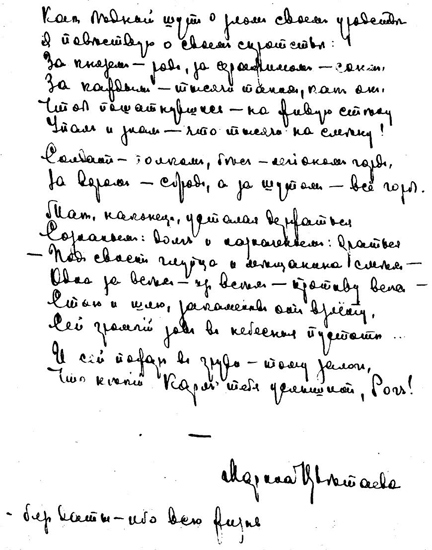 Как бѣдный шут о злом своем уродствѣ
Я повѣствую о своем сиротствѣ:
За князем — род, за серафимом — сонм,
За каждым — тысячи таких, как он,
Чтоб пошатнувшись — на живую стѣну
Упал и знал — что тысячи на смѣну!
Солдат — полком, бѣс — легіоном горд,
За вором — сброд, а за шутом — всё горб.
Так, наконец, усталая держаться
Сознаньем: долг и назначеньем: драться
— Под свист глупца и мещанина смѣх —
Одна за всѣх — из всѣх — противу всѣх —
Стою и шлю, закаменѣв от взлёту,
Сей громкій зов в небесныя пустоты ...
И сей пожар в груди — тому залог,
Что нѣкій Карл тебя услышит, Рог!
—
Марина Цвѣтаева
— ибо всю жизнь